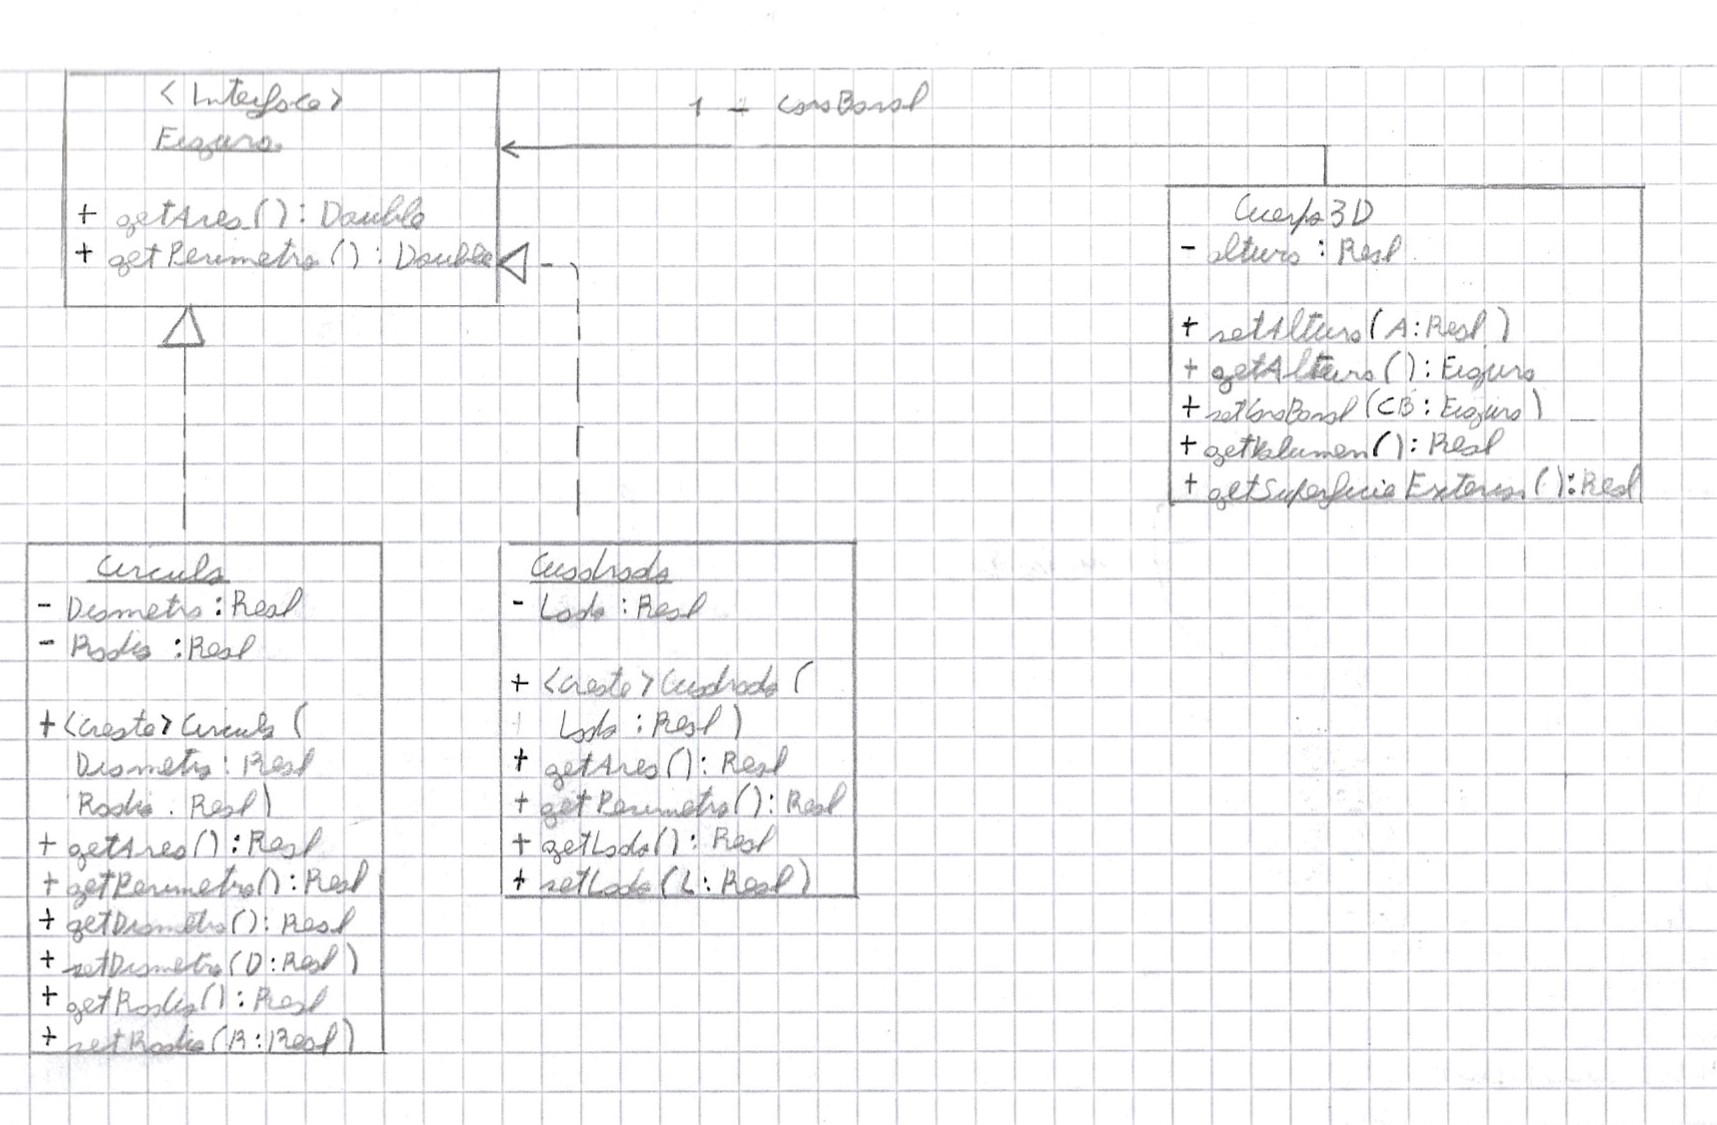 <Interface>
Figura
+ getArea(): Double
+ getPerimetro(): Double
1 - caraBasal
Cuerpo3D
- altura: Real
+ setAltura(A: Real)
+ getAltura(): Figura
+ setCaraBasal(CB: Figura)
+ getVolumen(): Real
+ getSuperficieExterior(): Real
Circulo
- Diametro: Real
- Radio: Real
+ <create> Circulo(
Diametro: Real
Radio: Real)
+ getArea(): Real
+ getPerimetro(): Real
+ getDiametro(): Real
+ setDiametro(D: Real)
+ getRadio(): Real
+ setRadio(R: Real)
Cuadrado
- Lado: Real
+ <create> Cuadrado(
Lado: Real)
+ getArea(): Real
+ getPerimetro(): Real
+ getLado(): Real
+ setLado(L: Real)